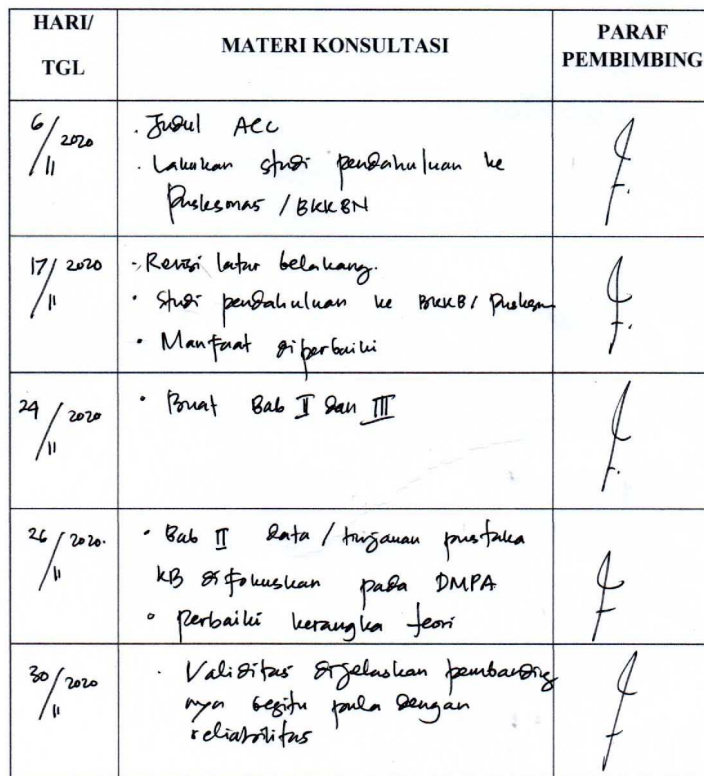 HARI/
TGL
MATERI KONSULTASI
PARAF
PEMBIMBING
6/11 2020
. Judul ACC
. Lakukan studi pendahuluan ke
Puskesmas / BKKBN
17/11 2020
- Revisi latar belakang.
• Studi pendahuluan ke BKKB / Puskesm
• Manfaat diperbaiki
24/11 2020
• Buat Bab II dan III
26/11 2020.
• Bab II data / tinjauan pustaka
KB difokuskan pada DMPA
• Perbaiki kerangka teori
30/11 2020
. Validitas dijelaskan pembanding
nya begitu pula dengan
reliabilitas